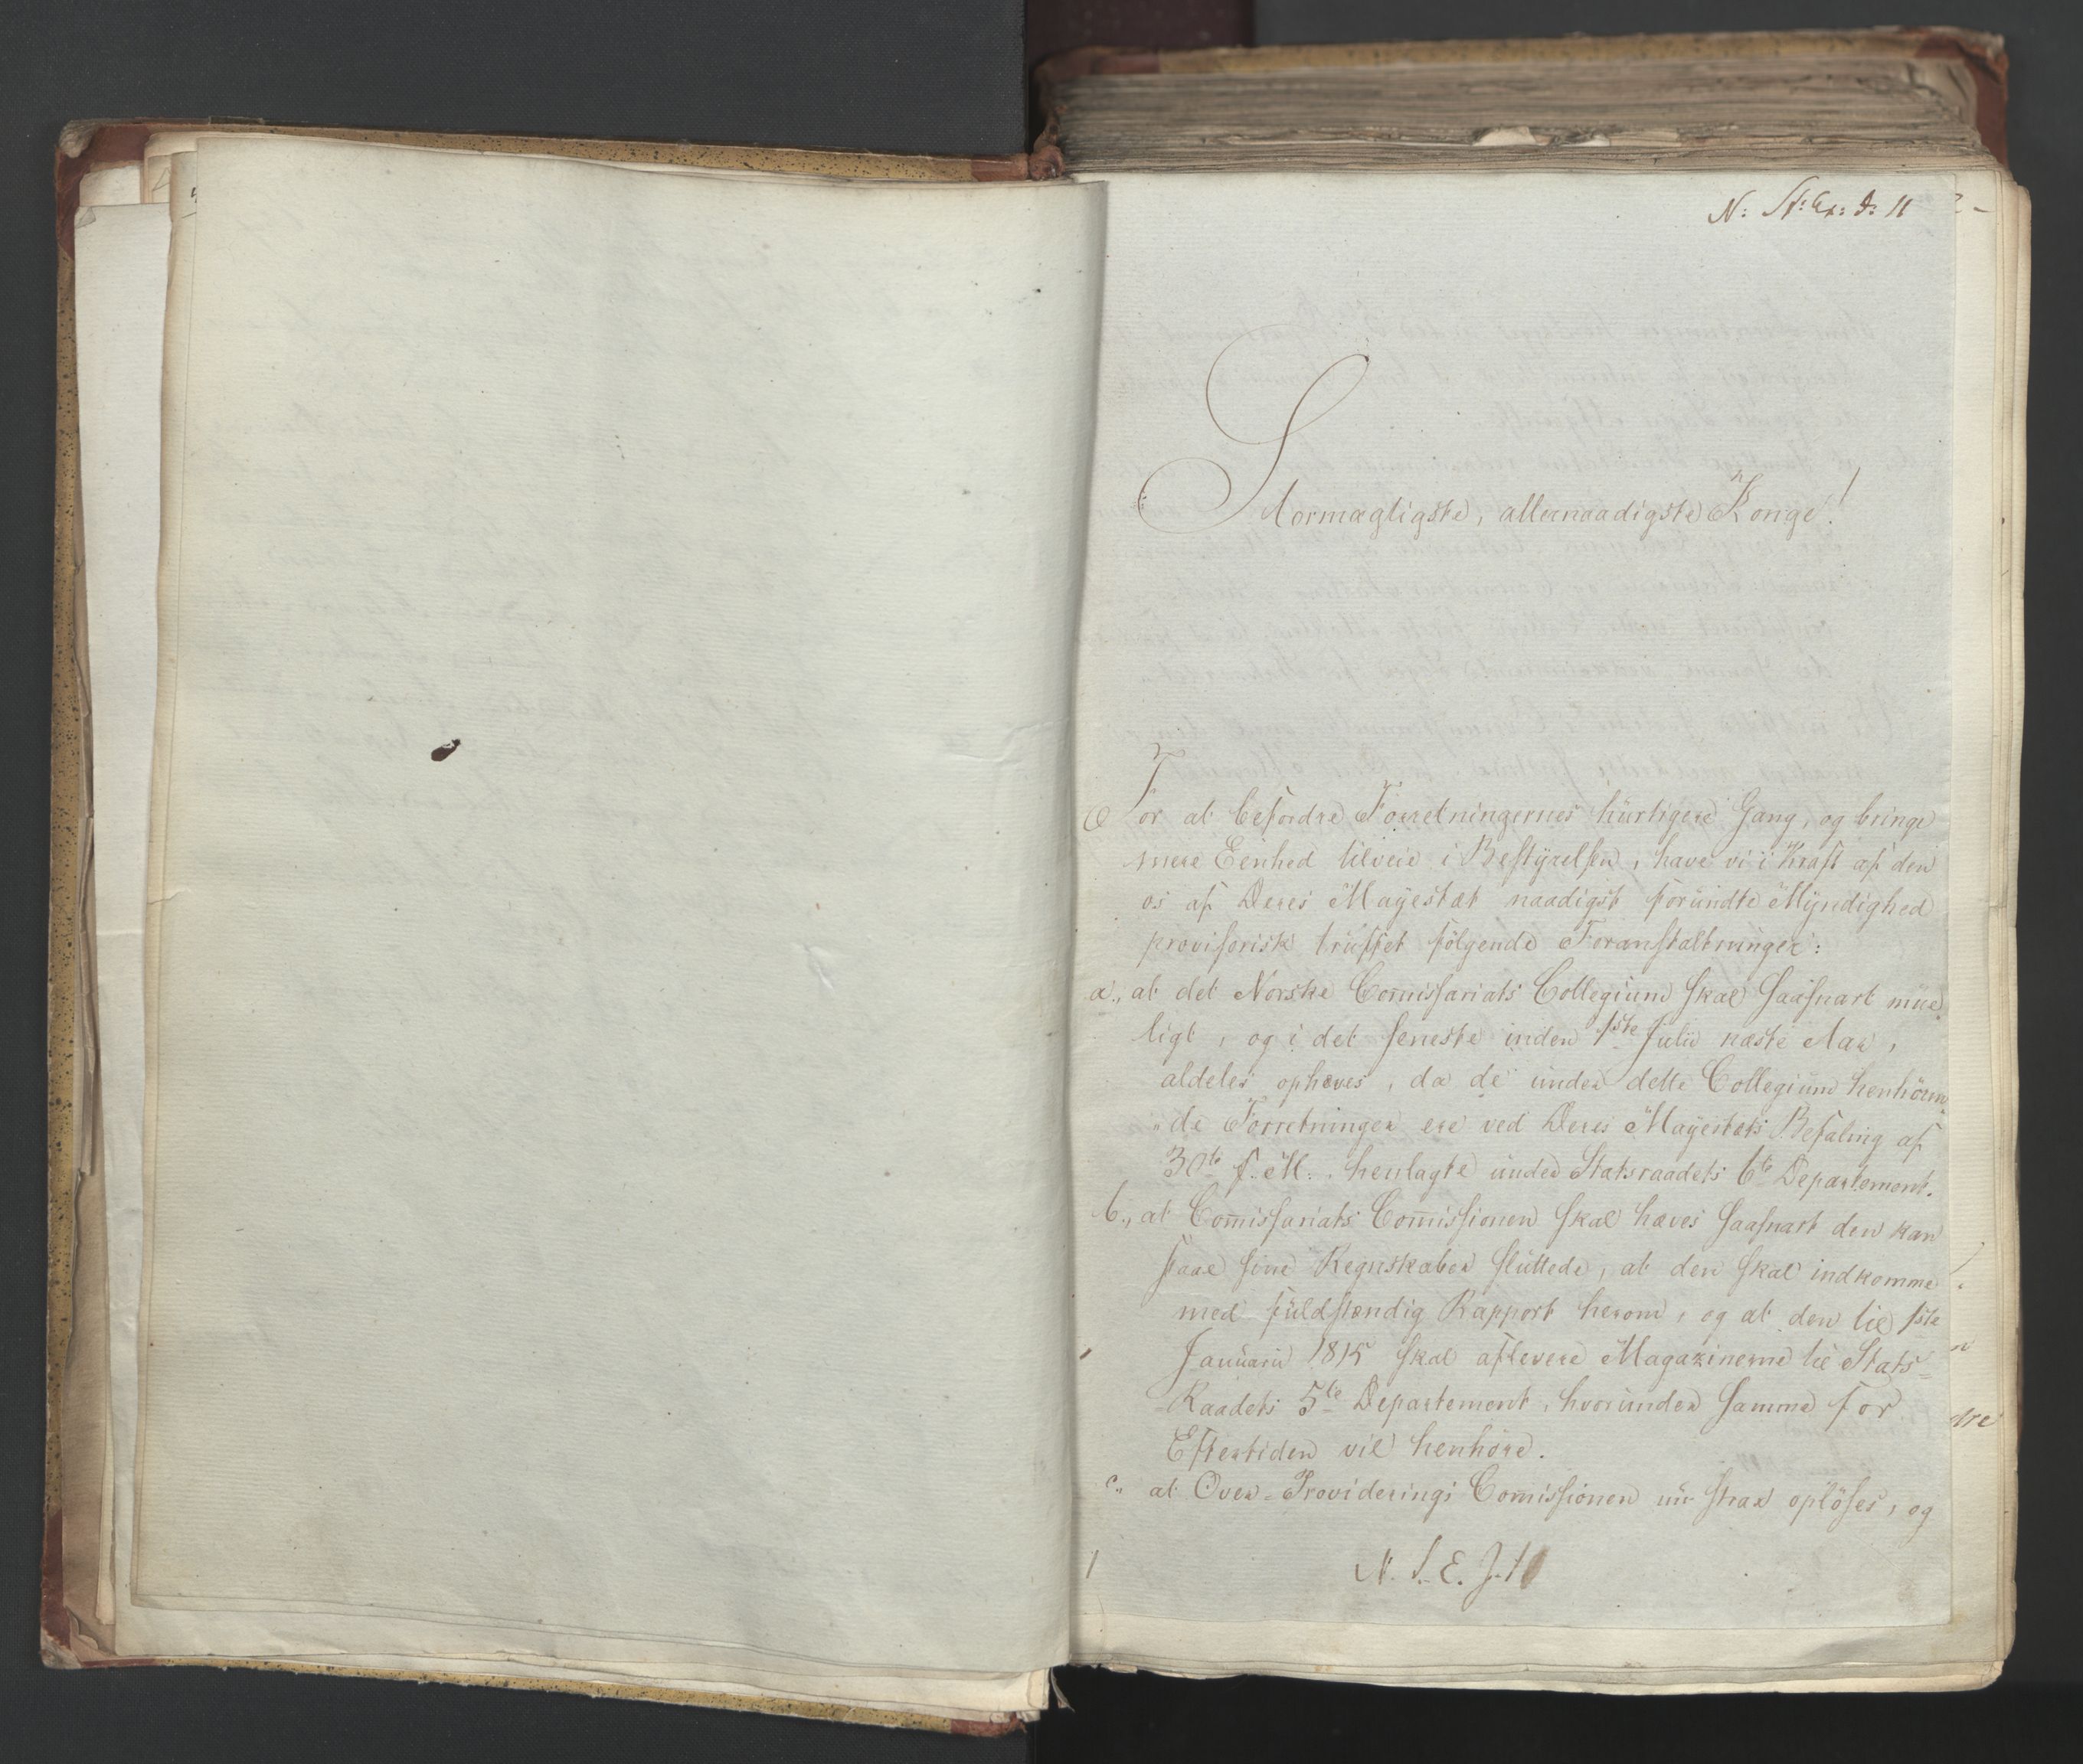 N: St: Ex: J: 11
Stormægtigste, allernaadigste Konge!
For at befordre Forretningernes hurtigere Gang, og bringe
mere Eenhed tilveie i Bestyrelsen, have vi i Kraft af den
os af Deres Mayestæt naadigst forundte Myndighed
provisorisk truffet følgende Foranstaltninger:
a., at det Norske Com̅issariats Collegium skal saasnart mue
ligt, og i det seneste inden 1ste Julii næste Aar,
aldeles ophæves, da de under dette Collegium henhøren
"de Forretninger ere ved Deres Mayestæts Befaling af
30te f. M. henlagte under Statsraadets 6te Departement.
b., at Com̅issariats Com̅issionen skal hæves saasnart den kan
faae sine Regnskaber sluttede, at den skal indkomme
med fuldstændig Rapport herom, og at den til 1ste
Januarii 1815 skal aflevere Magazinerne til Stats=
Raadets 5te Departement, hvorunder samme for
Eftertiden vil henhøre.
c., at Over-Providerings Com̅issionen nu strax opløses, og
N. S. E. J. 10